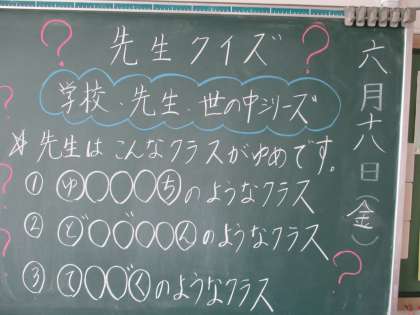 先生クイズ
学校、先生、世の中シリーズ
☆先生は こんなクラスがゆめです。
① ゆ○○○ちのようなクラス
② ど○○゛○○んのようなクラス
③ て○○゛くのようなクラス
六月十八日(金)
? ? ? ? ? ?